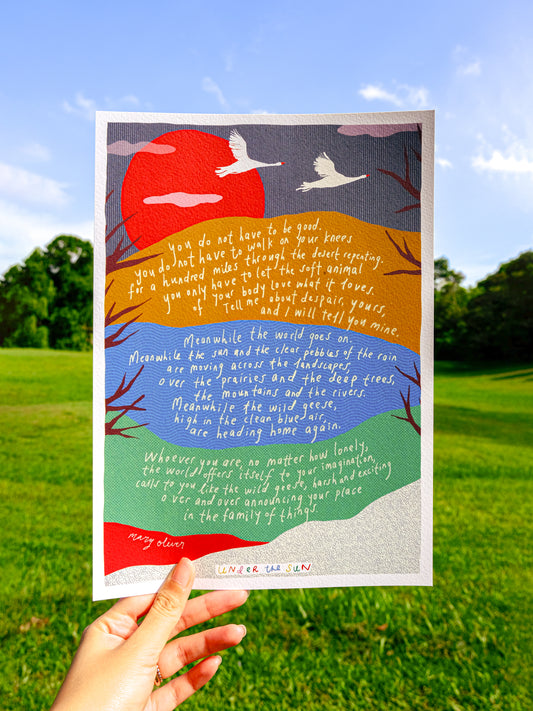 you do not have to be good.
you do not have to walk on your knees
for a hundred miles through the desert repenting.
you only have to let the soft animal
of your body love what it loves.
Tell me about despair, yours,
and I will tell you mine.
Meanwhile the world goes on.
Meanwhile the sun and the clear pebbles of the rain
are moving across the landscapes,
over the prairies and the deep trees,
the mountains and the rivers.
Meanwhile the wild geese,
high in the clean blue air,
are heading home again.
Whoever you are, no matter how lonely,
the world offers itself to your imagination,
calls to you like the wild geese, harsh and exciting
over and over announcing your place
in the family of things.
mary oliver
UNDER the SUN